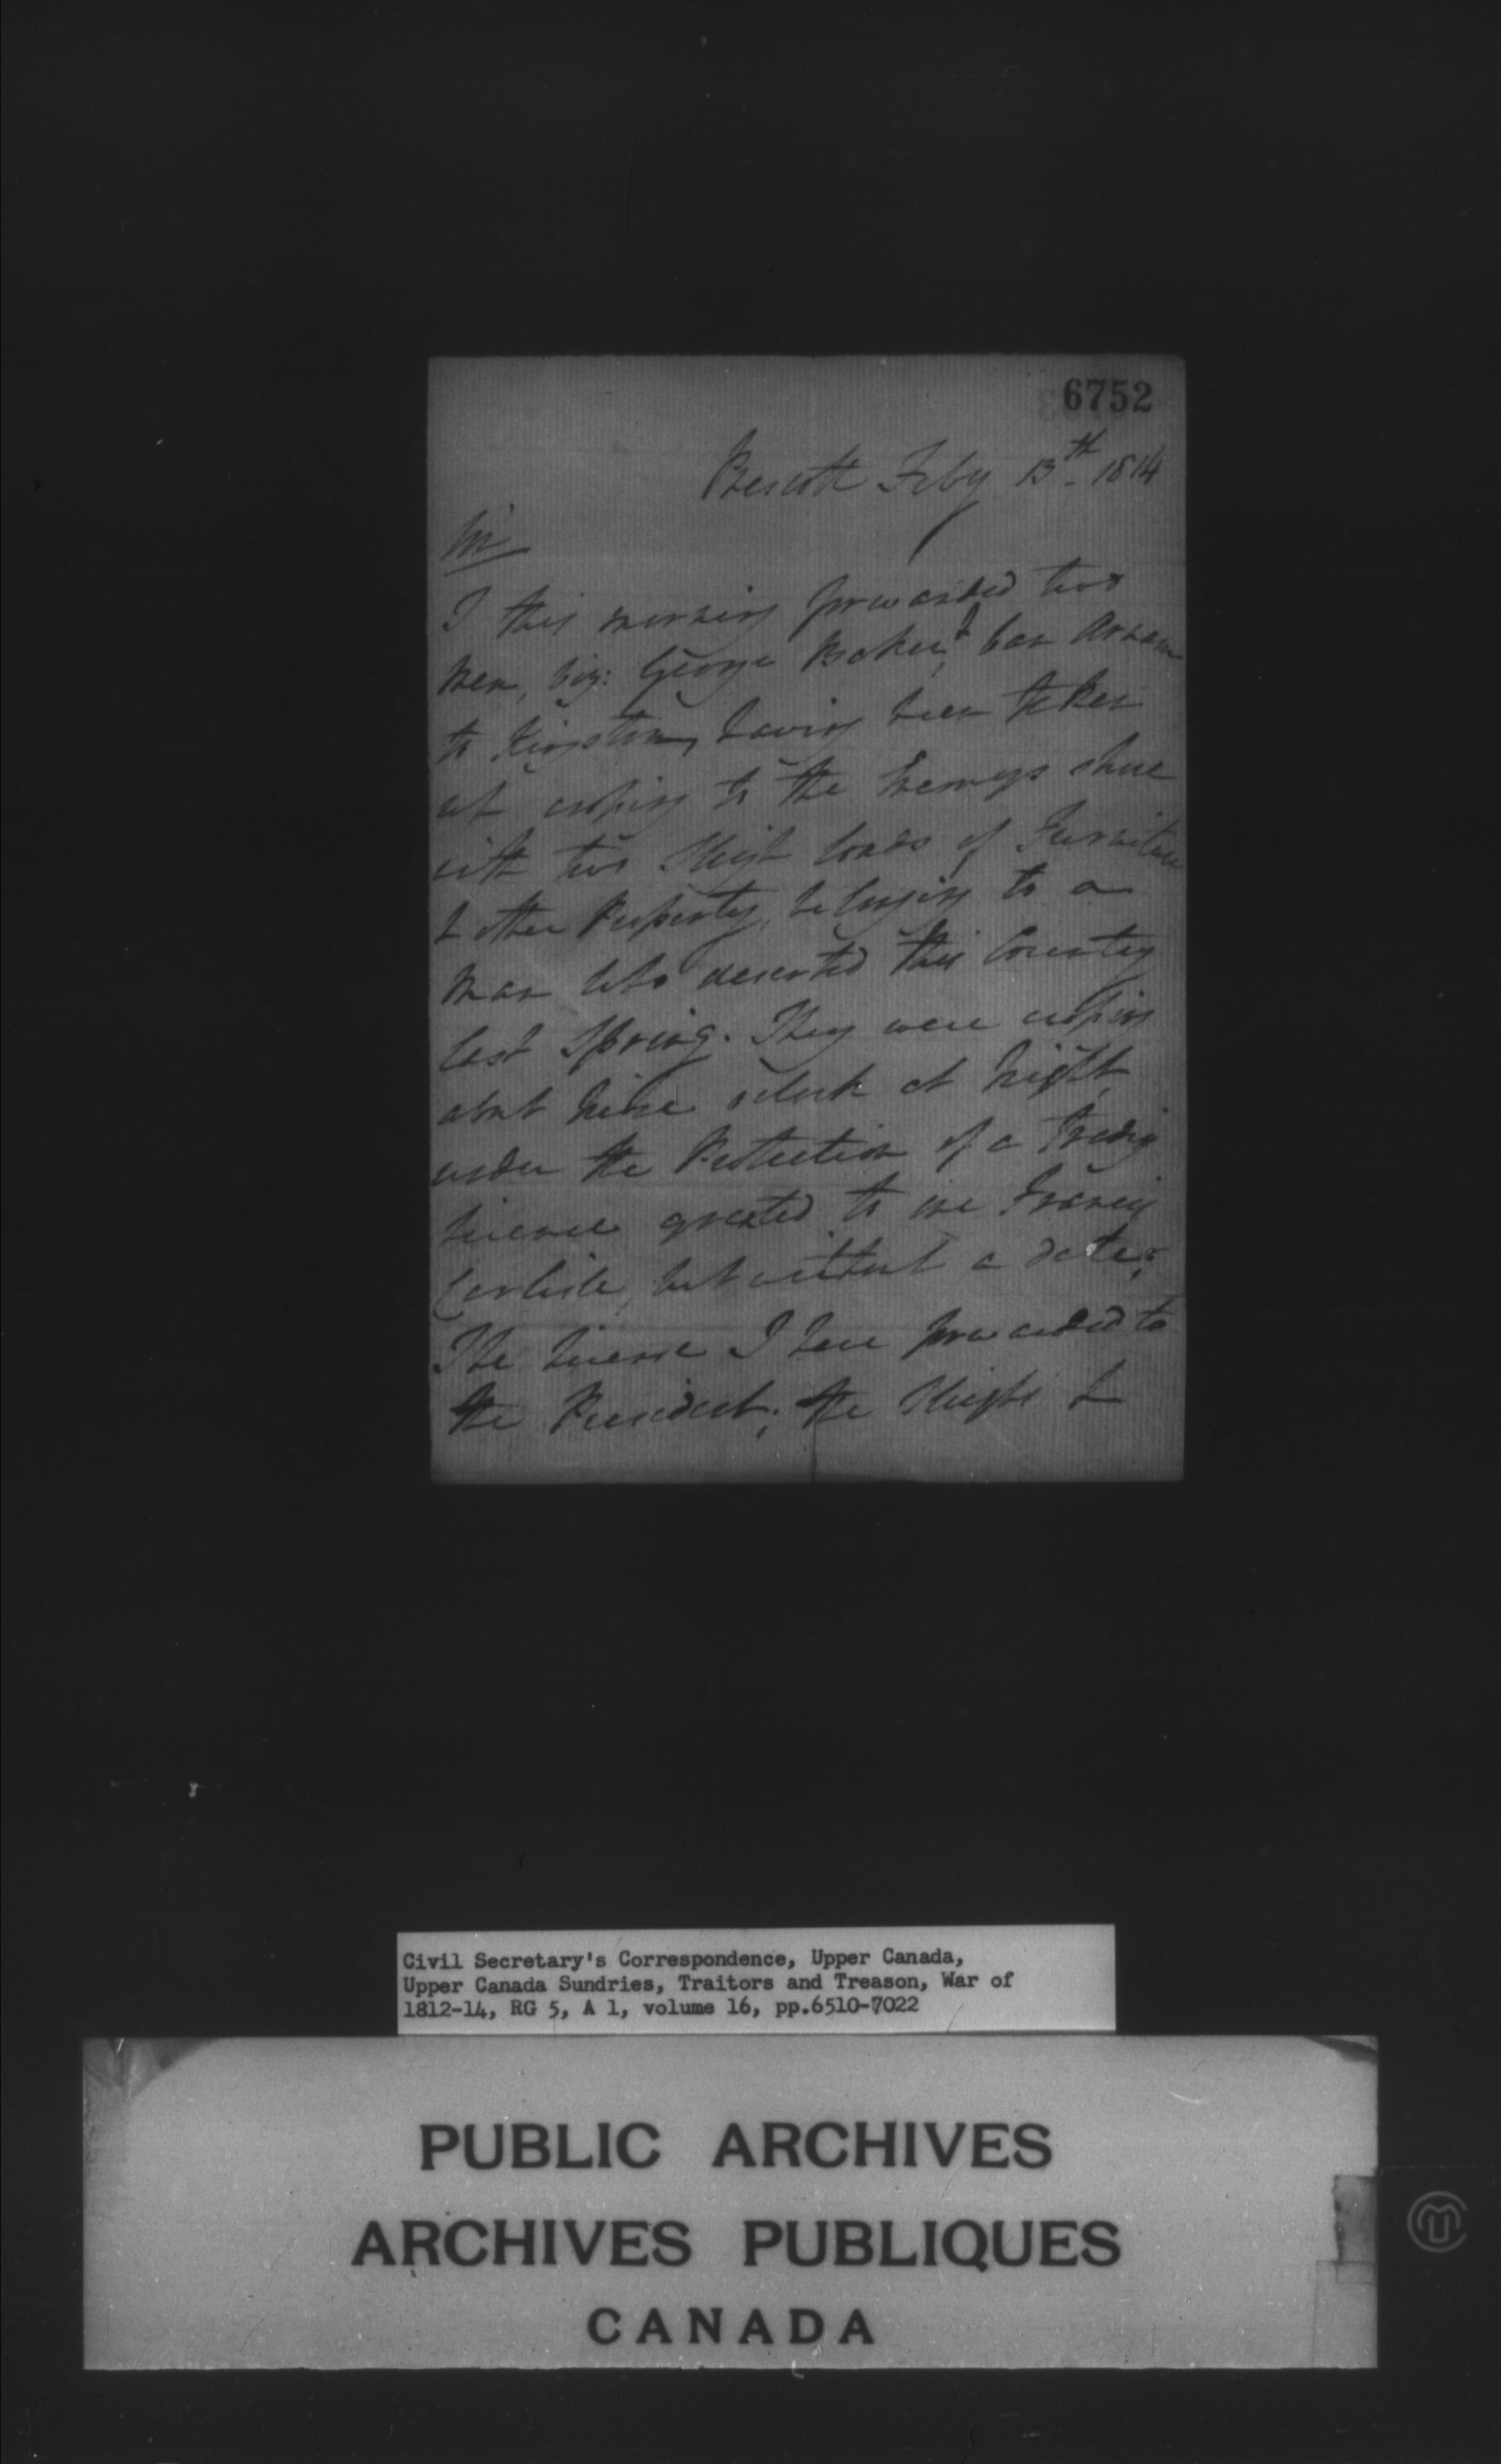 6752
Prescott Feby 13th 1814
Sir
I this morning forwarded two
Men, viz: George Baker, & Van
to Kingston, having been taken
at crossing to the Enemys shore
with two Sleigh loads of Furniture
& other Property, belonging to a
Man who deserted this Country
last Spring. They were crossing
about nine oClock at Night,
under the Protection of a Trading
License granted to one Francis
Carlisle, but without a date;
The License I have forwarded to
the President; the Sleighs &
Civil Secretary's Correspondence, Upper Canada,
Upper Canada Sundries, Traitors and Treason, War of
1812-14, RG 5, A 1, volume 16, pp.6510-7022
PUBLIC ARCHIVES
ARCHIVES PUBLIQUES
CANADA